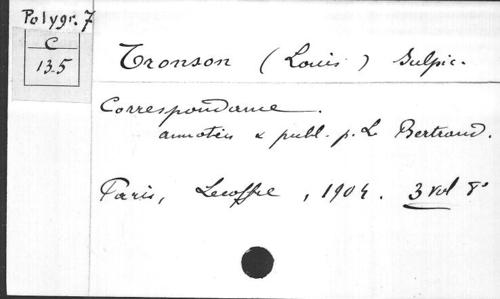 Polygr. 7
C
135
Tronson (Louis) Sulpic.
Correspondance.
annotée & publ. p. L. Bertrand.
Paris, Lecoffre, 1904. 3 vol 8°